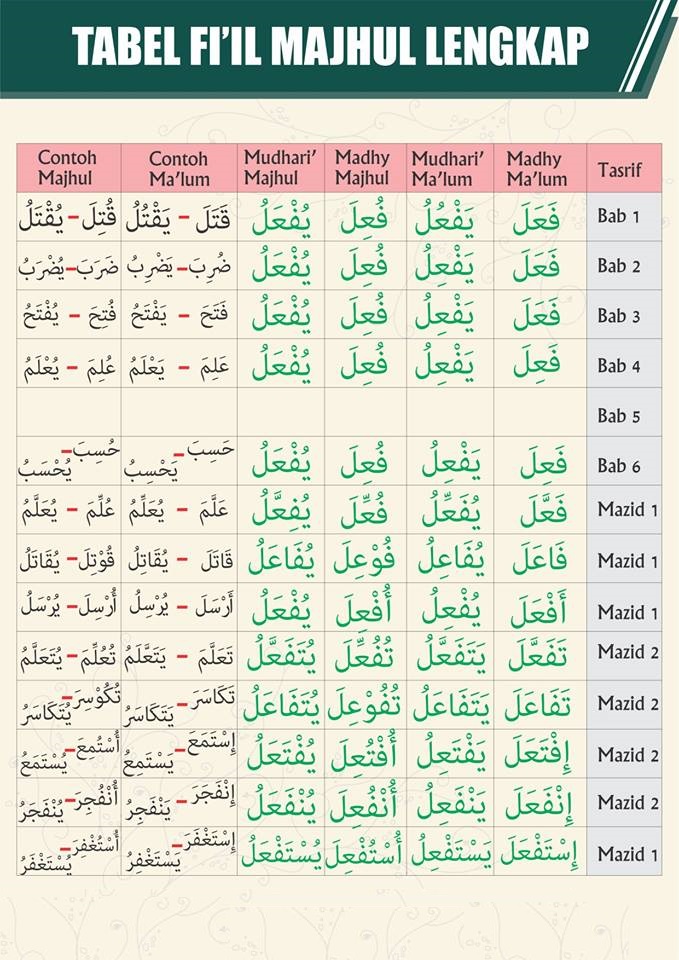 TABEL FI'IL MAJHUL LENGKAP
Tasrif Madhy Ma'lum Mudhari' Ma'lum Madhy Majhul Mudhari' Majhul Contoh Ma'lum Contoh Majhul
Bab 1 فَعَلَ يَفْعُلُ فُعِلَ يُفْعَلُ قَتَلَ – يَقْتُلُ قُتِلَ – يُقْتَلُ
Bab 2 فَعَلَ يَفْعِلُ فُعِلَ يُفْعَلُ ضُرِبَ – يَضْرِبُ ضَرَبَ – يُضْرَبُ
Bab 3 فَعَلَ يَفْعِلُ فُعِلَ يُفْعَلُ فَتَحَ – يَفْتَحُ فُتِحَ – يُفْتَحُ
Bab 4 فَعِلَ يَفْعِلُ فُعِلَ يُفْعَلُ عَلِمَ – يَعْلَمُ عُلِمَ – يُعْلَمُ
Bab 5
Bab 6 فَعِلَ يَفْعِلُ فُعِلَ يُفْعَلُ حَسِبَ – يَحْسِبُ حُسِبَ – يُحْسَبُ
Mazid 1 فَعَّلَ يُفَعِّلُ فُعِّلَ يُفَعَّلُ عَلَّمَ – يُعَلِّمُ عُلِّمَ – يُعَلَّمُ
Mazid 1 فَاعَلَ يُفَاعِلُ فُوْعِلَ يُفَاعَلُ قَاتَلَ – يُقَاتِلُ قُوْتِلَ – يُقَاتَلُ
Mazid 1 أَفْعَلَ يُفْعِلُ أُفْعِلَ يُفْعَلُ أَرْسَلَ – يُرْسِلُ أُرْسِلَ – يُرْسَلُ
Mazid 2 تَفَعَّلَ يَتَفَعَّلُ تُفُعِّلَ يُتَفَعَّلُ تَعَلَّمَ – يَتَعَلَّمُ تُعُلِّمَ – يُتَعَلَّمُ
Mazid 2 تَفَاعَلَ يَتَفَاعَلُ تُفُوْعِلَ يُتَفَاعَلُ تَكَاسَرَ – يَتَكَاسَرُ تُكُوْسِرَ – يُتَكَاسَرُ
Mazid 2 إِفْتَعَلَ يَفْتَعِلُ أُفْتُعِلَ يُفْتَعَلُ إِسْتَمَعَ – يَسْتَمِعُ أُسْتُمِعَ – يُسْتَمَعُ
Mazid 2 إِنْفَعَلَ يَنْفَعِلُ أُنْفُعِلَ يُنْفَعَلُ إِنْفَجَرَ – يَنْفَجِرُ أُنْفُجِرَ – يُنْفَجَرُ
Mazid 1 إِسْتَفْعَلَ يَسْتَفْعِلُ أُسْتُفْعِلَ يُسْتَفْعَلُ إِسْتَغْفَرَ – يَسْتَغْفِرُ أُسْتُغْفِرَ – يُسْتَغْفَرُ